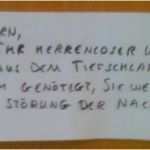 REN,
IHR HERRENLOSER W
AUS DEM TIEFSCHLAF
M GENÖTIGT, SIE WE
STÖRUNG DER NAC